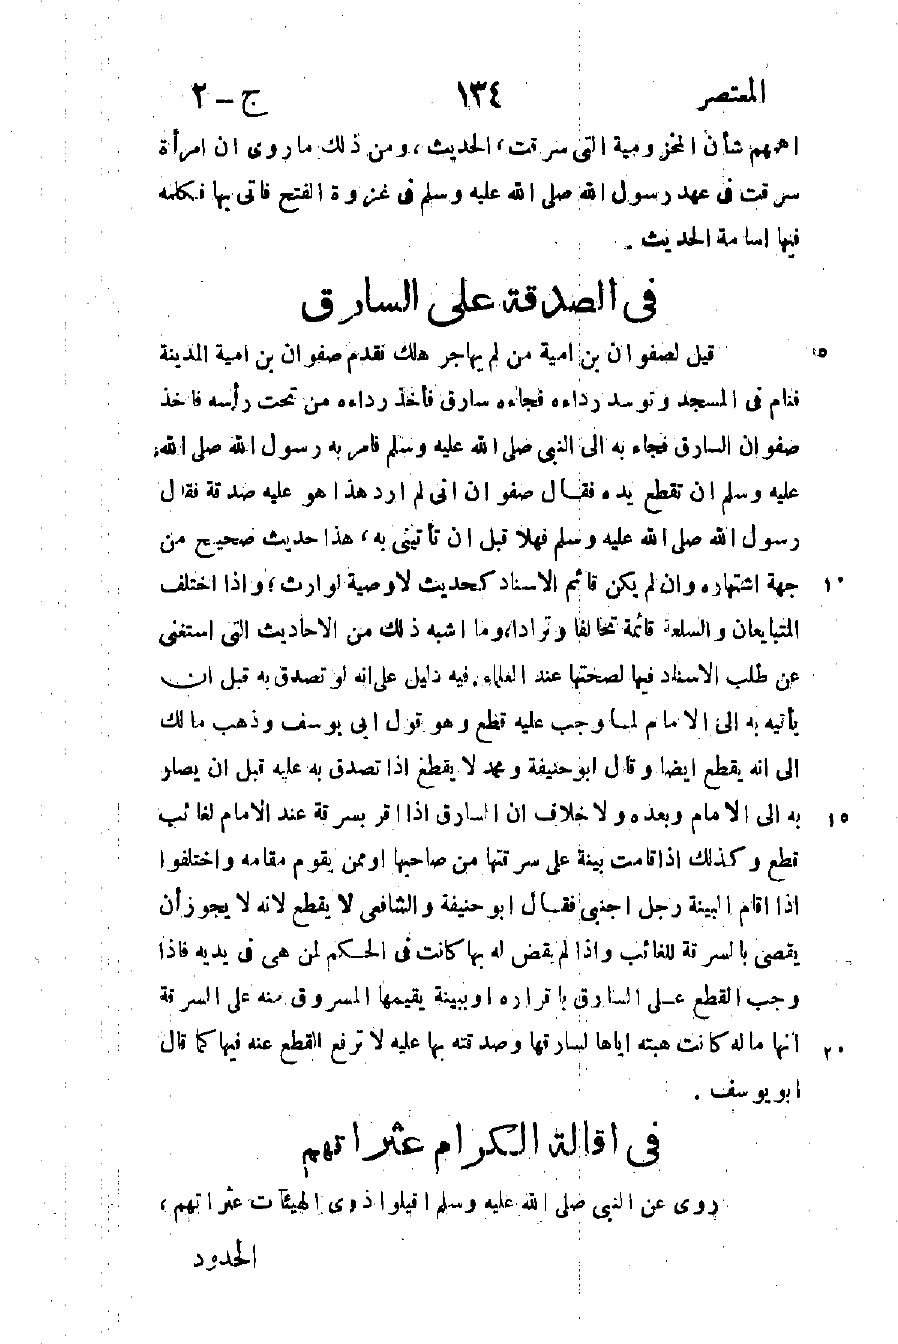 المعتصر ١٣٤ ج – ٢
اهمهم شأن المخزومية التى سرقت، الحديث، ومن ذلك ماروى ان امرأة
سرقت فى عهد رسول الله صلى الله عليه وسلم فى غزوة الفتح فاتى بها فكلمه
فيها اسامة الحديث .
فى الصدقة على السارق
قيل لصفوان بن امية من لم يهاجر هلك فقدم صفوان بن امية المدينة ٥
فنام فى المسجد وتوسد رداءه فجاءه سارق فأخذ رداءه من تحت رأسه فاخذ
صفوان السارق فجاء به الى النبى صلى الله عليه وسلم فامر به رسول الله صلى الله
عليه وسلم ان تقطع يده فقال صفوان انى لم ارد هذا هو عليه صدقة فقال
رسول الله صلى الله عليه وسلم فهلا قبل ان تأتينى به، هذا حديث صحيح من
جهة اشتهاره وان لم يكن قائم الاسناد كحديث لاوصية لوارث؛ واذا اختلف ١٠
المتبايعان والسلعة قائمة تحالفا وترادا، وما اشبه ذلك من الاحاديث التى استغنى
عن طلب الاسناد فيها لصحتها عند العلماء. فيه دليل على انه لو تصدق به قبل ان
يأتيه به الى الامام لما وجب عليه قطع وهو قول ابى يوسف وذهب مالك
الى انه يقطع ايضا وقال ابو حنيفة ومحمد لا يقطع اذا تصدق به عليه قبل ان يصار
به الى الامام وبعده ولا خلاف ان السارق اذا اقر بسرقة عند الامام لغائب ١٥
قطع وكذلك اذا قامت بينة على سرقتها من صاحبها اوممن يقوم مقامه واختلفوا
اذا اقام البينة رجل اجنبى فقال ابو حنيفة والشافعى لا يقطع لانه لا يجوز أن
يقضى بالسرقة للغائب واذا لم يقض له بها كانت فى الحكم لمن هى فى يديه فاذا
وجب القطع على السارق باقراره اوببينة يقيمها المسروق منه على السرقة
انها ماله كانت هبته اياها لسارقها وصدقته بها عليه لا ترفع القطع عنه فيها كما قال ٢٠
ابو يوسف .
فى اقالة الكرام عثراتهم
روى عن النبى صلى الله عليه وسلم اقيلوا ذوى الهيئآت عثراتهم،
الحدود